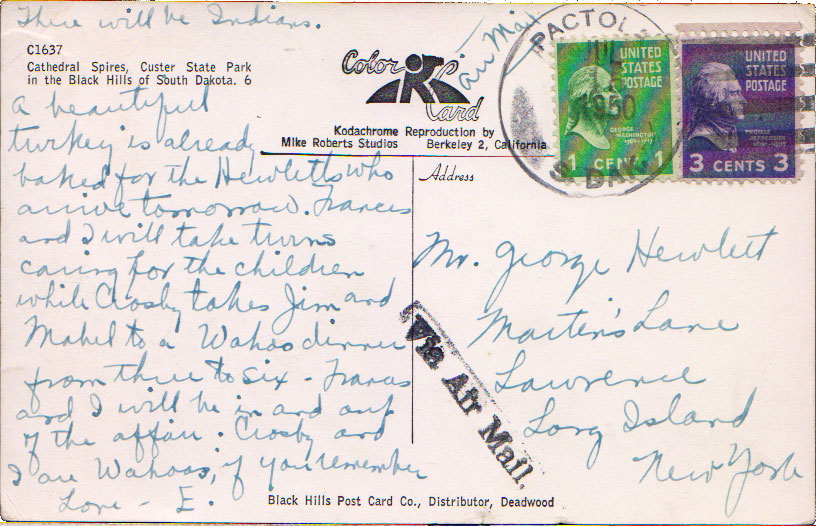 There will be Indians.
C1637
Cathedral Spires, Custer State Park
in the Black Hills of South Dakota. 6
a beautiful
turkey is already
baked for the Hewletts who
arrive tomorrow. Frances
and I will take turns
caring for the children
while Crosby takes Jim and
Mabel to a Wahoo dinner
from three to six - Frances
and I will be in and out
of the affair. Crosby and
I are Wahoos, if you remember
Love - E.
Color
Card
Kodachrome Reproduction by
Mike Roberts Studios Berkeley 2, California
air Mail
PACTOLA
JUL
1950
S. DAK.
UNITED
STATES
POSTAGE
GEORGE
WASHINGTON
1789-1797
1 CENT 1
UNITED
STATES
POSTAGE
THOMAS
JEFFERSON
3 CENTS 3
Address
Mr. George Hewlett
Martin's Lane
Lawrence
Long Island
New York
Via Air Mail.
Black Hills Post Card Co., Distributor, Deadwood